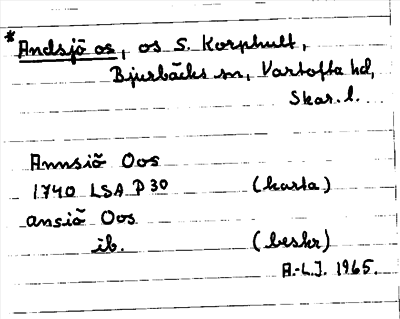 *Andsjö os, os S. Korphult,
Bjurbäcks sn, Vartofta hd,
Skar. l.
Annsiö Oos
1740 LSA P 30 (karta)
ansiö Oos
ib. (beskr)
A.-L.J. 1965.